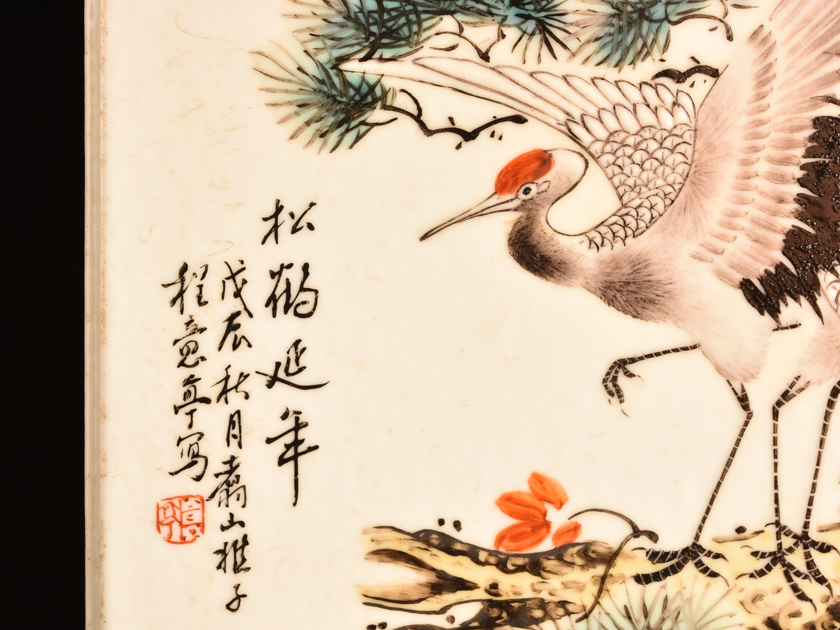 松鶴延年
戊辰秋月翥山樵子
程意亭写